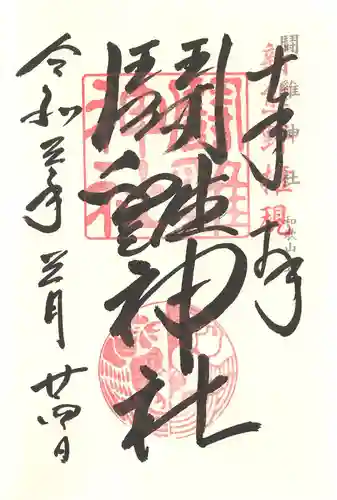 闘雞神社 和歌山
新熊野権現
奉拝
闘雞神社
闘雞神社
令和三年三月廿四日